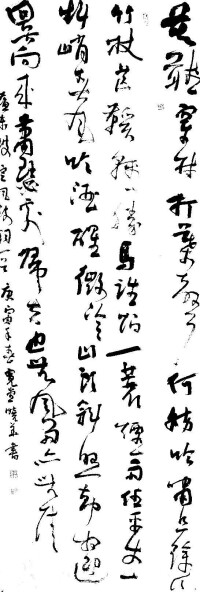 莫聽穿林打葉聲何妨吟嘯且徐行
竹杖芒鞋輕勝馬誰怕一蓑煙雨任平生
料峭春風吹酒醒微冷山頭斜照却相迎
回首向來蕭瑟處歸去也無風雨也無晴
東坡定風波詞一首庚寅年春書